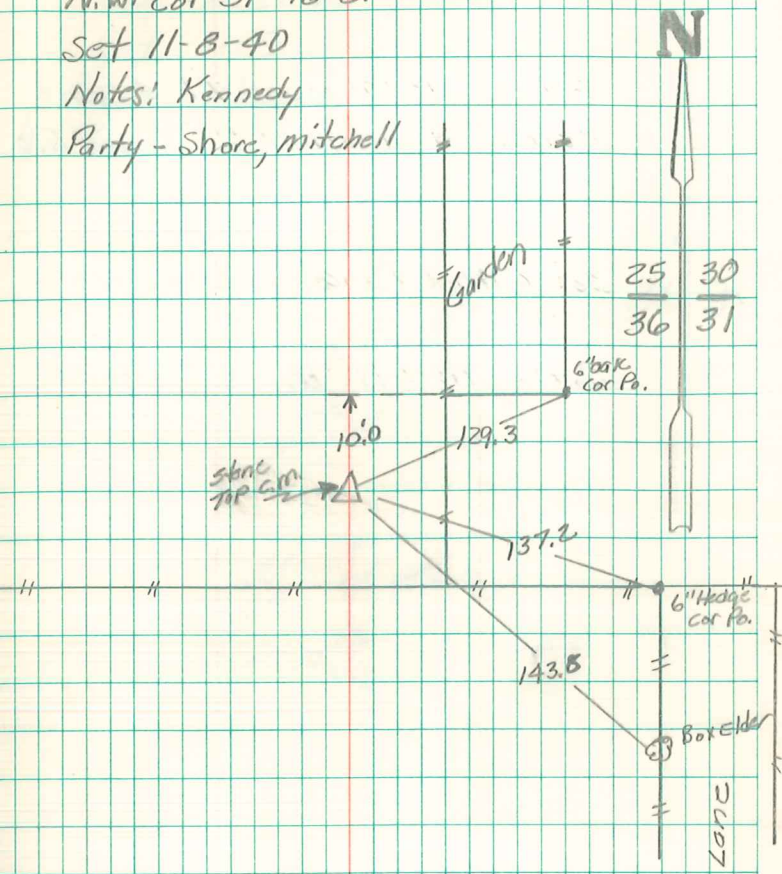 Set 11-8-40
Notes: Kennedy
Party - Shore, mitchell
N
Garden
25 30
36 31
6" oak
cor Po.
10.0
129.3
stone
Top C.M.
137.2
6" Hedge
cor Po.
143.8
Box Elder
Lane